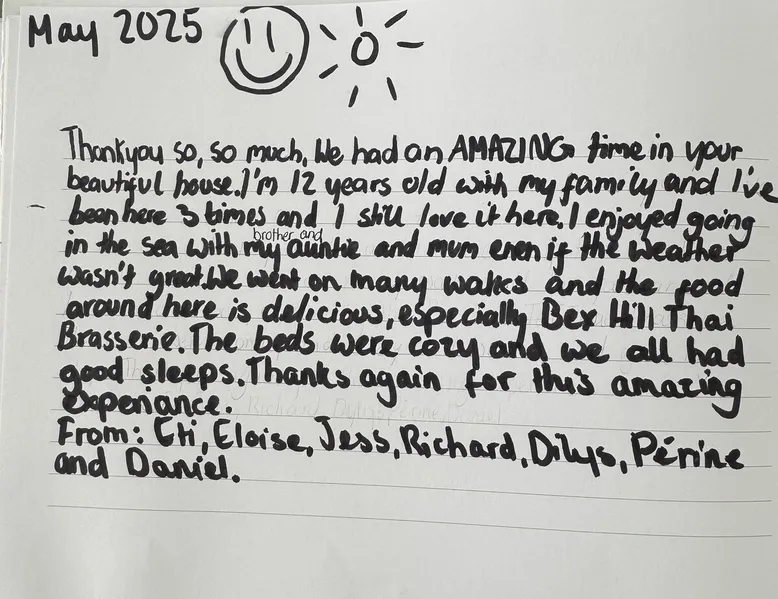 May 2025
Thankyou so, so much, We had an AMAZING time in your
beautiful house. I'm 12 years old with my family and I've
been here 3 times and I still love it here. I enjoyed going
in the sea with my brother and auntie and mum even if the weather
wasn't great. We went on many walks and the food
around here is delicious, especially Bex Hill Thai
Brasserie. The beds were cozy and we all had
good sleeps. Thanks again for this amazing
experiance.
From: Eti, Eloise, Jess, Richard, Dilys, Périne
and Daniel.